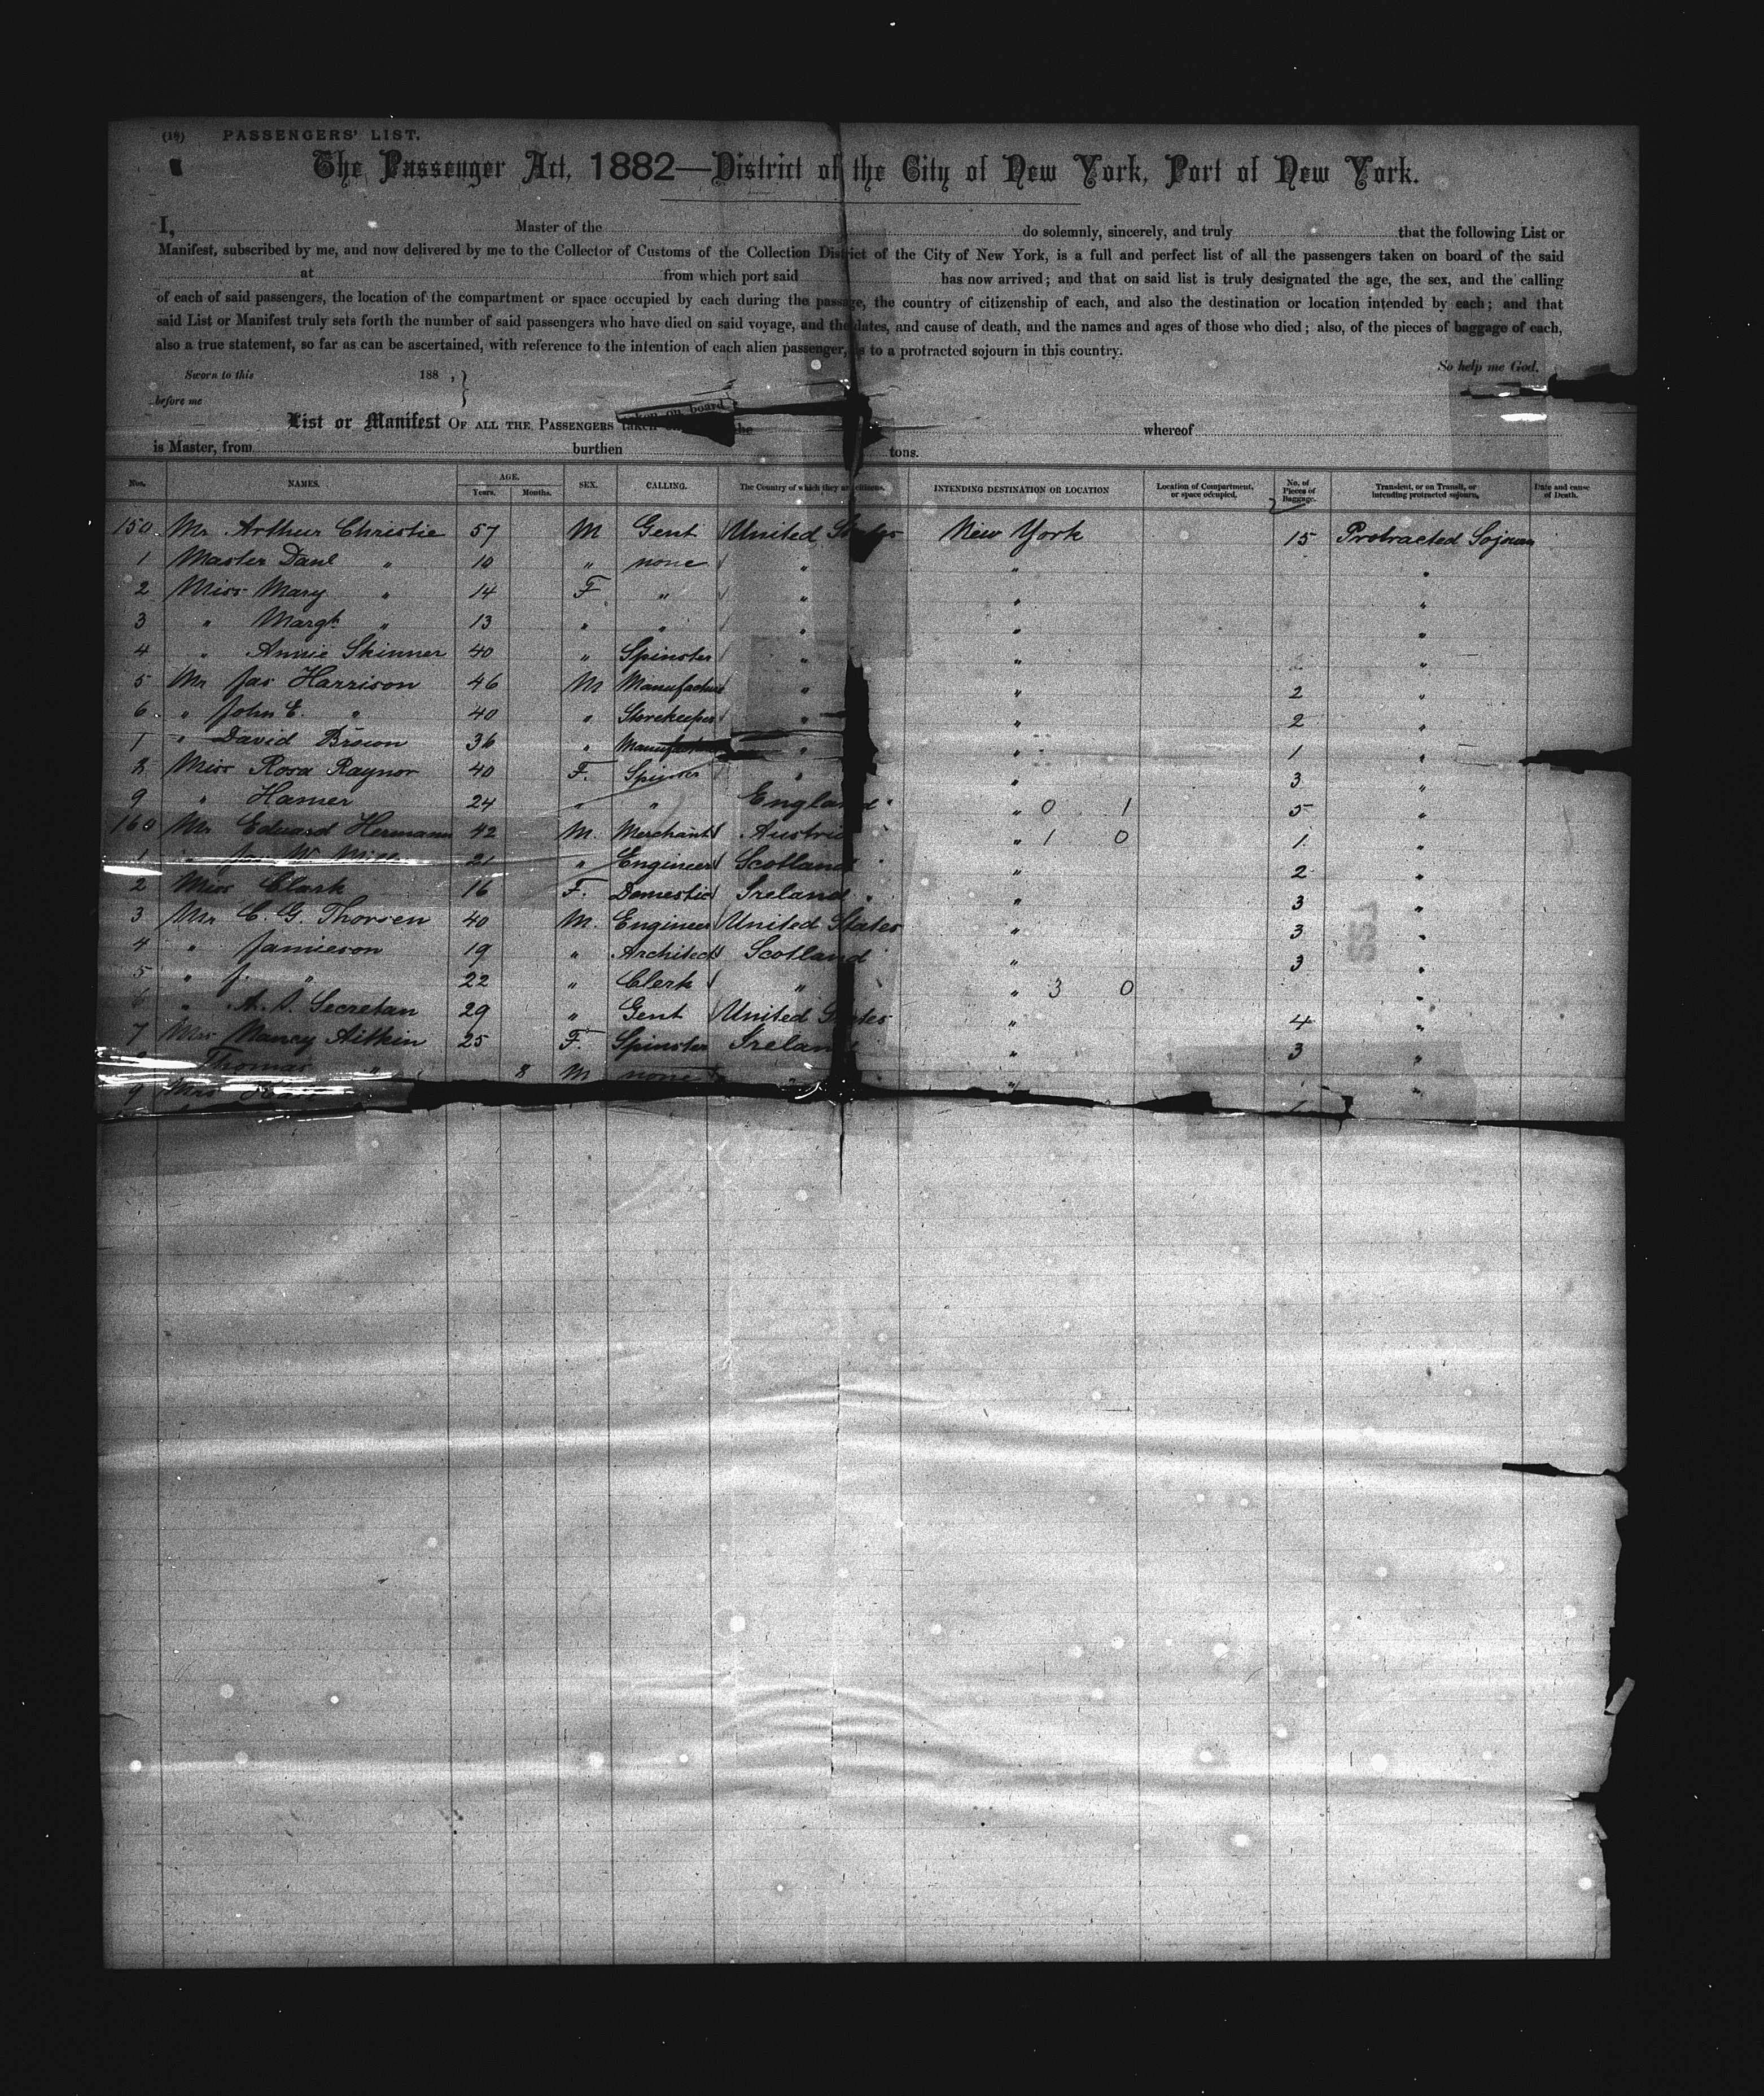 (10) PASSENGERS' LIST.
The Passenger Act, 1882—District of the City of New York, Port of New York.
I, Master of the do solemnly, sincerely, and truly that the following List or
Manifest, subscribed by me, and now delivered by me to the Collector of Customs of the Collection District of the City of New York, is a full and perfect list of all the passengers taken on board of the said
at from which port said has now arrived; and that on said list is truly designated the age, the sex, and the calling
of each of said passengers, the location of the compartment or space occupied by each during the passage, the country of citizenship of each, and also the destination or location intended by each; and that
said List or Manifest truly sets forth the number of said passengers who have died on said voyage, and the dates, and cause of death, and the names and ages of those who died; also, of the pieces of baggage of each,
also a true statement, so far as can be ascertained, with reference to the intention of each alien passenger, as to a protracted sojourn in this country.
So help me God.
Sworn to this 188 ,}
before me
List or Manifest OF ALL THE PASSENGERS taken on board the whereof
is Master, from burthen tons.
Nos. NAMES. AGE. Years. Months. SEX. CALLING. The Country of which they are citizens. INTENDING DESTINATION OR LOCATION Location of Compartment, or space occupied. No. of Pieces of Baggage. Transient, or on Transit, or intending protracted sojourn. Date and cause of Death.
150 Mr Arthur Christie 57 M Gent United States New York 15 Protracted Sojourn
1 Master Danl " 10 " none " " "
2 Miss Mary " 14 F " " " "
3 " Margt " 13 " " " " "
4 " Annie Skinner 40 " Spinster " " "
5 Mr Jas Harrison 46 M Manufacturer " " 2 "
6 " John E. " 40 " Storekeeper " " 2 "
" David Brown 36 " " " 1 "
8 Miss Rosa Raynor 40 F. " " 3 "
9 " Hamer 24 " " England " 0 1 5 "
160 Mr Eduard Hermann 42 M. Merchant Austria " 1 0 1 "
1 " 21 " Engineer Scotland " 2 "
2 Miss Clark 16 F. Domestic Ireland " 3 "
3 Mr C. G. Thorsen 40 M. Engineer United States " 3 "
4 " Jamieson 19 " Architect Scotland " 3 "
5 " J. " 22 " Clerk " " 3 0 "
6 " Secretan 29 " Gent United States " 4 "
7 Miss Nancy Aitkin 25 F. Spinster Ireland " 3 "
Thomas " 8 M none " " "
9 Mrs